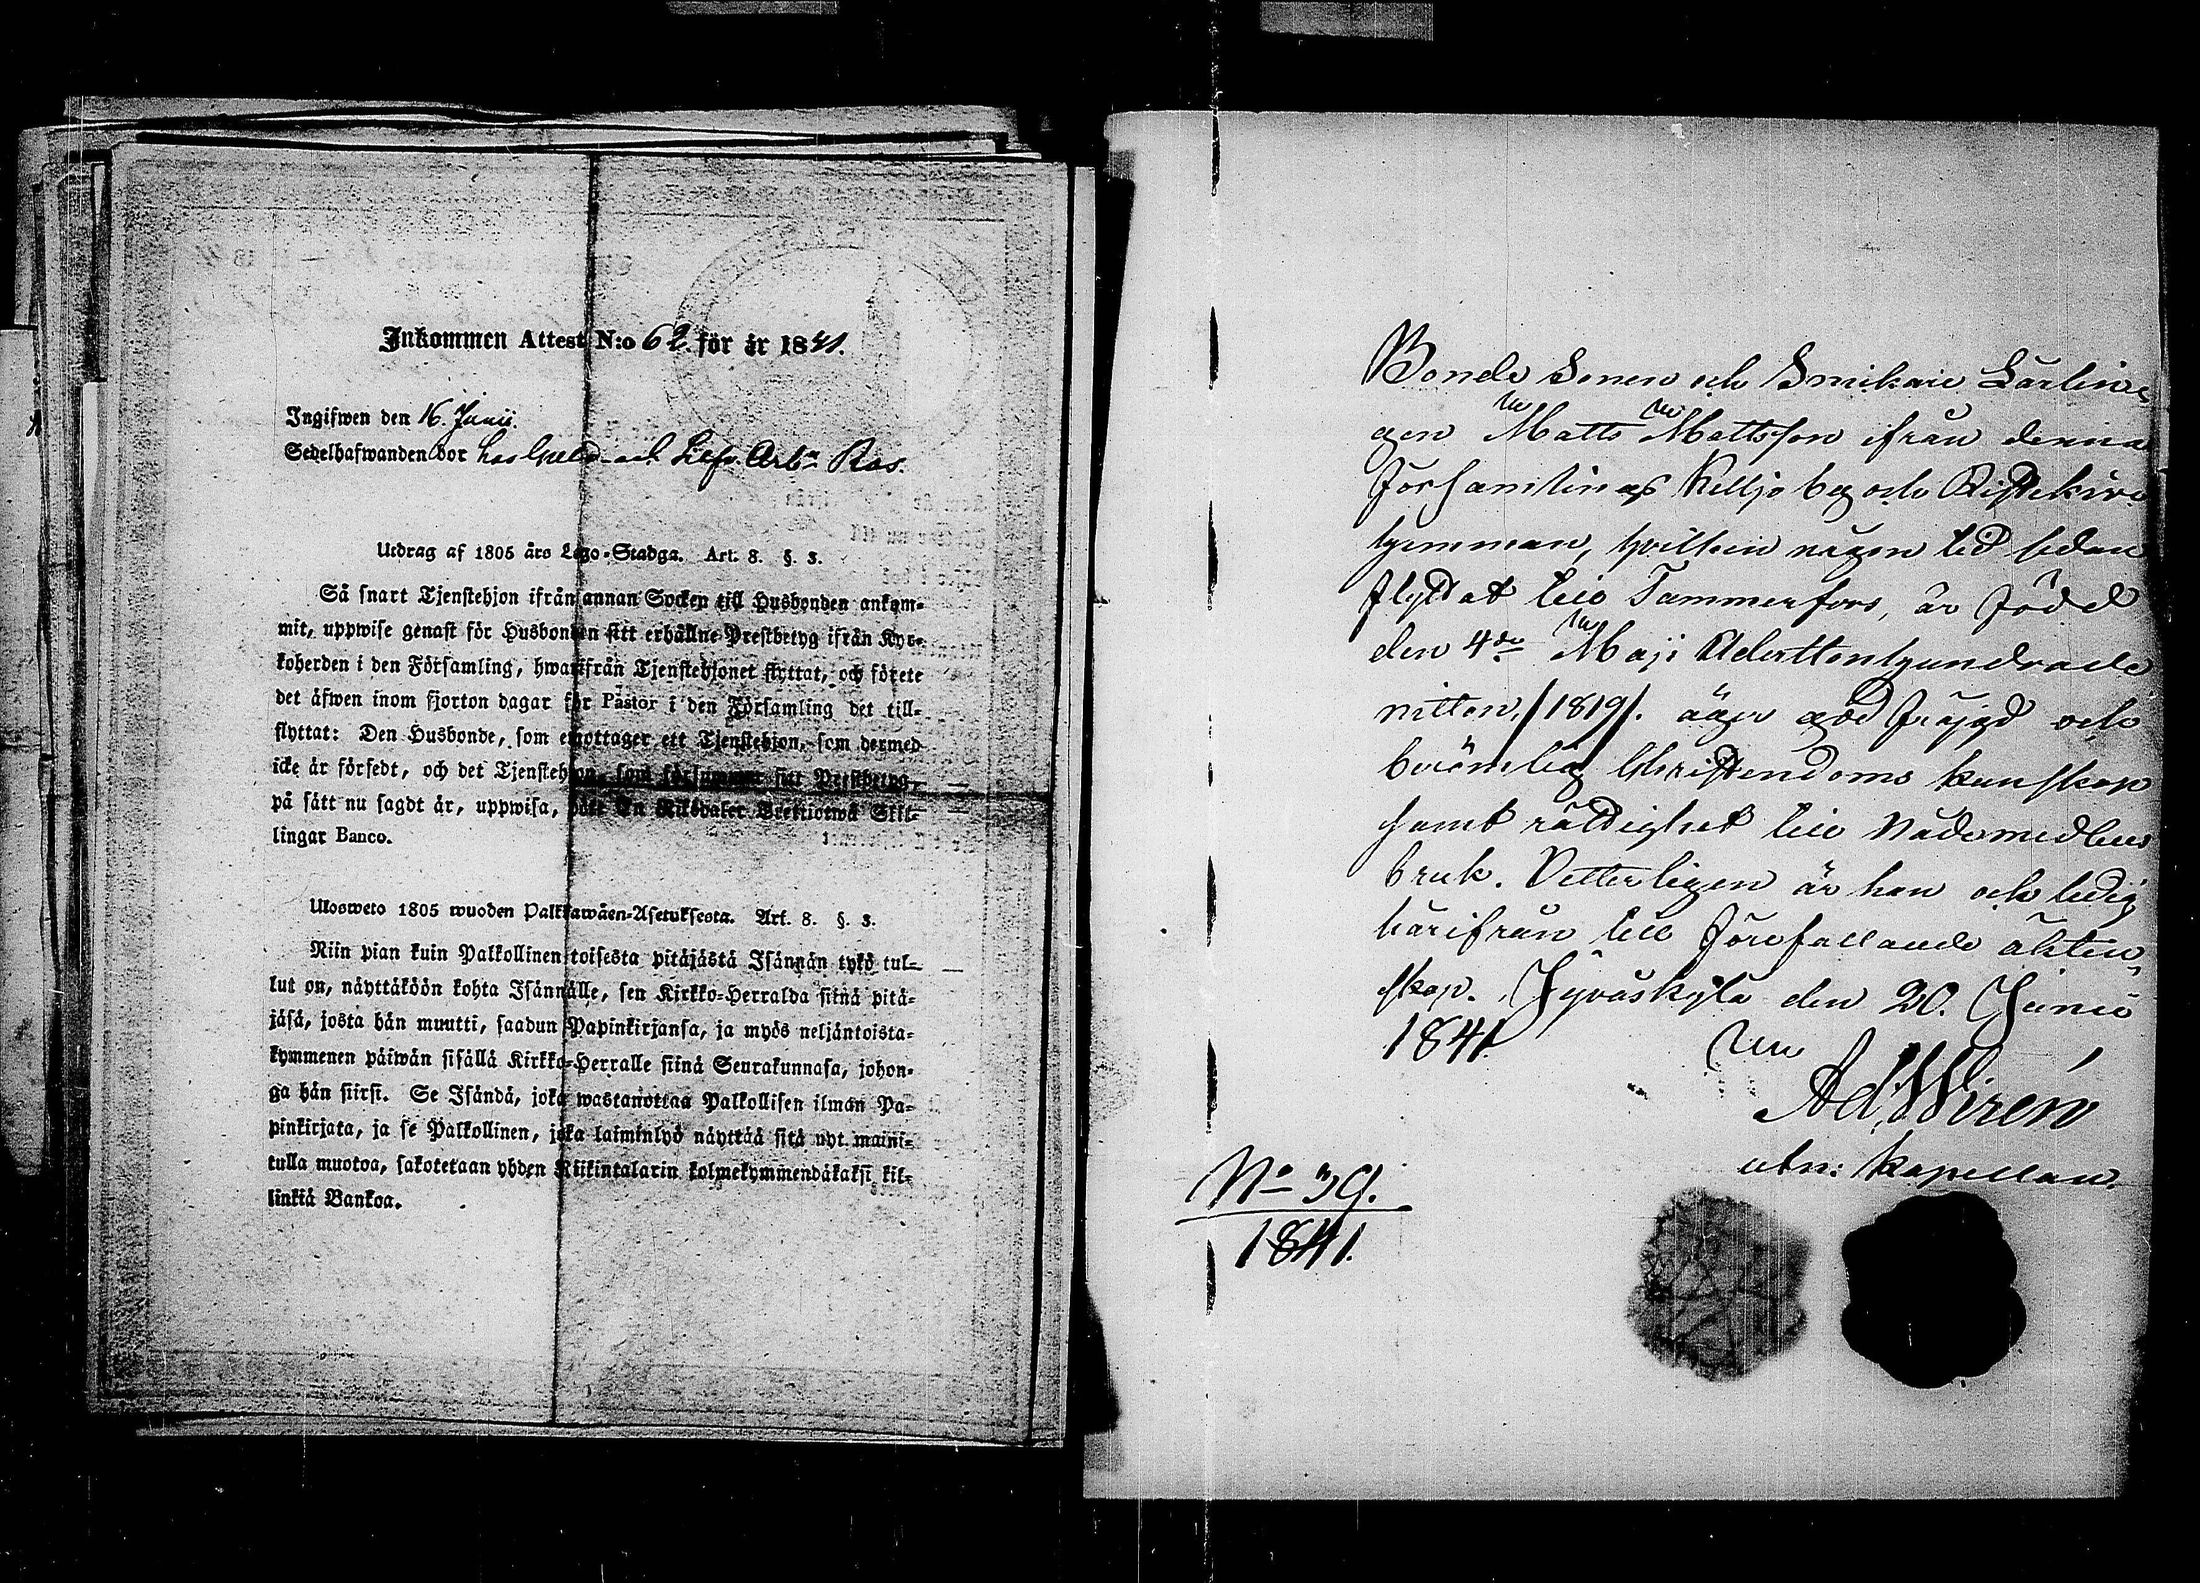 Inkommen Attest N:o 62. för år 1841.
Ingifwen den 16. Junii.
Sedelhafwanden bor hos Arb. Ras.
Utdrag af 1805 års Lego-Stadga. Art. 8. §. 3.
Så snart Tjenstehjon ifrån annan Socken till Husbonden ankom-
mit, uppwise genast för Husbonden sitt erhållne Prestbetyg ifrån Kyr-
koherden i den Församling, hwarifrån Tjenstehjonet flyttat, och förete
det äfwen inom fjorton dagar för Pastor i den Församling det till-
flyttat: Den Husbonde, som emottager ett Tjenstehjon, som dermed
icke är försedt, och det Tjenstehjon, som försummar sitt Prestbetyg,
på sätt nu sagdt är, uppwisa, böte En Riksdaler Trettiotwå Skil-
lingar Banco.
Ulosweto 1805 wuoden Palkkawäen-Asetuksesta. Art. 8. §. 3.
Niin pian kuin Palkollinen toisesta pitäjästä Isännän tykö tul-
lut on, näyttäköön kohta Isännälle, sen Kirkko-Herralda siinä pitä-
jäsä, josta hän muutti, saadun Papinkirjansa, ja myös neljäntoista-
kymmenen päiwän sisällä Kirkko-Herralle siinä Seurakunnasa, johon-
ga hän siirsi. Se Isändä, joka wastanottaa Palkollisen ilman Pa-
pinkirjata, ja se Palkollinen, joka laiminlyö näyttää sitä nyt maini-
tulla muotoa, sakotetaan yhden Riikintalarin kolmekymmendäkaksi kil-
linkiä Bankoa.
Bonde Sonen och Snickare Lärlin-
gen Matts Mattsson ifrån denna
Församlings Keljo by och
hemman, hvilken någon tid sedan
flyttat till Tammerfors, är född
den 4de Maji Adertonhundrade
nitton /1819/. äger god fräjd och
berömlig Christendoms kunskap
samt rättighet till Nådemedlens
bruk. Vetterligen är han ock ledig
härifrån till förefallande äkten-
skap. Jyväskylä den 20. Junii
1841.
Ad. Wirén
Kapellan.
No 39.
1841.